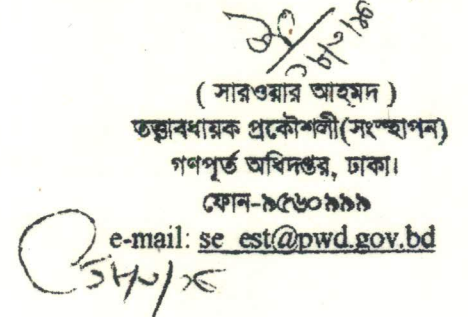 ( সারওয়ার আহমদ )
তত্ত্বাবধায়ক প্রকৌশলী(সংস্হাপন)
গণপূর্ত অধিদপ্তর, ঢাকা।
ফোন-৯৫৬০৯৯৯
e-mail: se_est@pwd.gov.bd